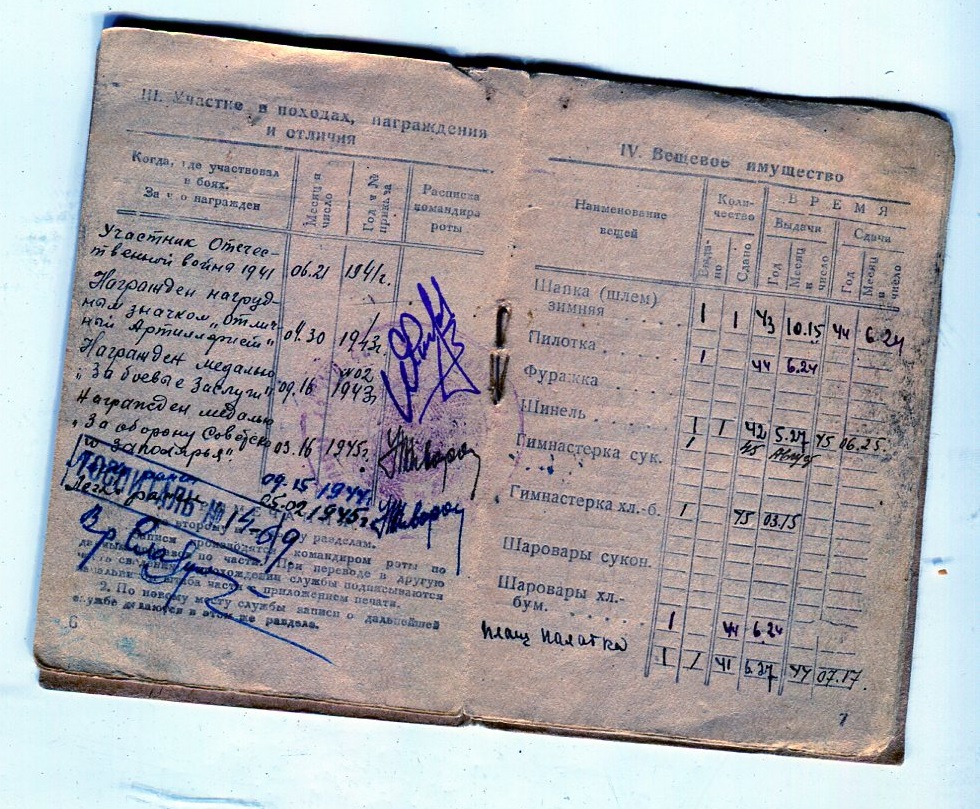 III. Участие в походах, награждения
и отличия
Когда, где участвовал
в боях.
За что награжден
Месяц и
число
Год и №
приказа
Расписка
командира
роты
Участник Отечес-
твенной война 1941 06.21 1941г.
Награжден нагруд-
ным значком „Отлич-
ный Артиллерист" 04.30 1943г.
Награжден медалью №02
„За боевые Заслуги" 09.16 1943г
Награжден медалью
„За оборону Советско
го Заполярья". 03.16 1945г.
ранен 09.15 1944г
Легко ранен 05.02 1945г.
ГОСПИТАЛЬ № 14-69
второму разделам.
Записи производятся командиром роты по
по части. При переводе в другую
часть сведения о прохождении службы подписываются
начальником штаба части с приложением печати.
2. По новому месту службы записи о дальнейшей
службе делаются в этом же разделе.
6
IV. Вещевое имущество
Наименование
вещей
Коли-
чество
Выда-
но
Сдано
ВРЕМЯ
Выдачи
Сдачи
Год
Месяц
и
число
Год
Месяц
и
число
Шапка (шлем)
зимняя 1 1 43 10.15 44 6.24
Пилотка 1 44 6.24
Фуражка
Шинель 1 1 42 5.27 45 06.25.
Гимнастерка сук. 1 45
Гимнастерка хл.-б. 1 45 03.15
Шаровары сукон.
Шаровары хл.-
бум. 1 44 6.24
плащ палатка 1 1 41 6.27 44 07.17.
7